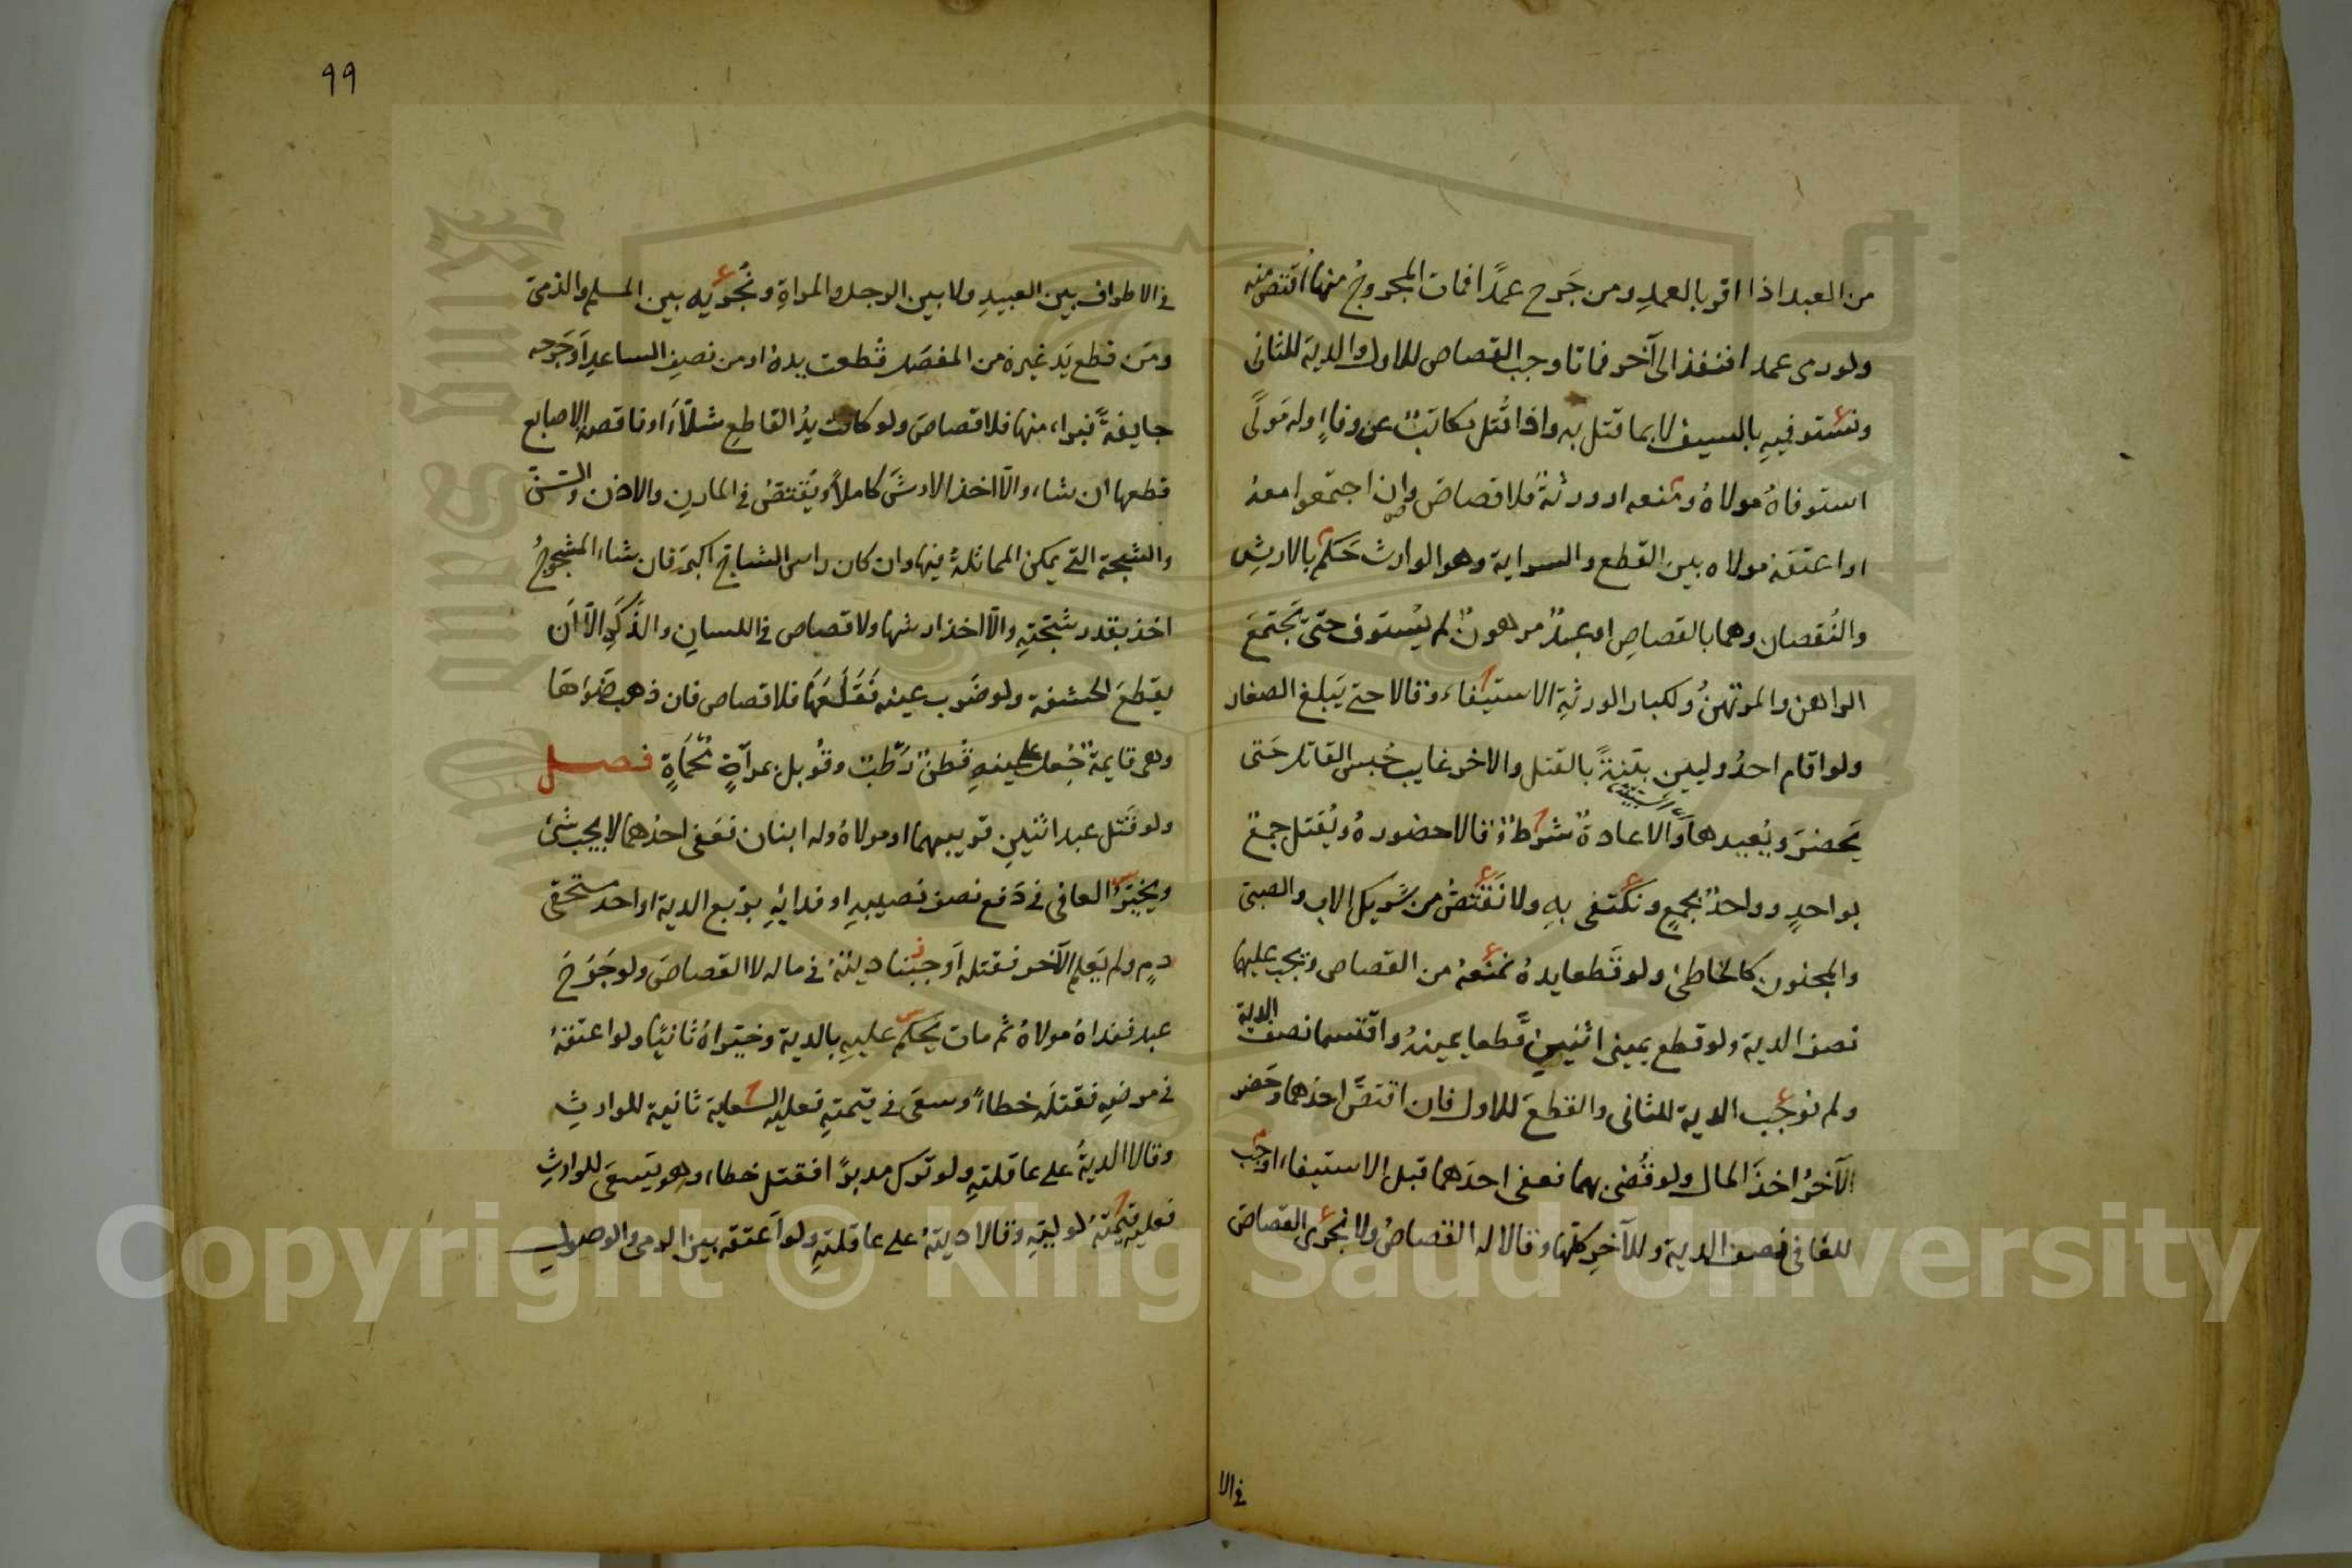 من العبد اذا اقر بالعمدِ ومن جَرح عمدًا فمات المجروحُ منها اُقتصّ منه
ولو رمى عمدا فنفذ الى آخر فماتا وجب القصاص للاول والدية للثانى
ونستوفيهِ بالسيف لا بما قتل به واذا قُتل مكاتبٌ عن وفاءٍ وله مَولًى
استوفاهُ مولاهُ ومنعه او ورثةٌ فلا قصاصَ وان اجتمعوا معهُ
او اعتقه مولاه بين القطع والسراية وهو الوارث حَكم بالارشِ
والنُقصان وهما بالقصاصِ او عبدٌ مرهونٌ لم يُستوف حتى يَجتمعَ
الراهن والمرتهنُ ولكبار الورثةِ الاستيفاء وقالا حتى يَبلغ الصغار
ولو اقام احدُ وليينِ بيّنةً بالقتل والاخر غايب حُبس القاتل حَتى
يَحضرَ ويُعيدها والاعادةُ شرطٌ وقالا حضورهُ ويُقتل جمعٌ
بواحدٍ وواحدٌ بجمعٍ ونكتفى بهِ ولا نَقتصُّ من شريك الاب والصبىّ
والمجنون كالخاطئ ولو قَطعا يدهُ نمنعهُ من القصاص ويجب عليهما
نصف الدية ولو قطع يمينى اثنينِ قَطعا يمينهُ واقتسما نصف الدية
ولم نوجب الدية للثانى والقطعَ للاول فان اقتصّ احدُهما وحَضر
الآخرُ اخذَ المال ولو قُضى بهما فعفى احدهما قبل الاستيفاء اوجب
للعافى نصف الدية وللآخرِ كلّها وقالا له القصاصُ ولا نجرى القصاصَ
فى الا
٩٩
فى الاطراف بين العبيدِ ولا بين الرجل والمراةِ ونُجريه بين المسلم والذمىّ
ومَن قطع يَد غيره من المفصَل قُطعت يدهُ او من نصفِ الساعدِ اَو جَرحه
جايفةً فبراء منها فلا قصاصَ ولو كانت يدُ القاطعِ شلّاءَ او ناقصة الاصابع
قطعها ان شاء والّا اخذ الارشَ كاملاً ويُقتصّ فى المارنِ والاذن والسّنّ
والشجة التى يمكن المماثلةُ فيها وان كان راس الشاجّ اكبرَ فان شاء المشجوجُ
اخذ بقدر شجّتهِ والّا اخذ ارشها ولا قصاص فى اللسانِ والذَّكَرِ الّا اَن
يقطعَ الحشفة ولو ضَرب عينه فَقَلَعَها فلا قصاص فان ذهب ضَوُءها
وهى قايمة جُعل على عينهِ قُطنٌ رَطْبٌ وقُوبل بمرآةٍ مُحْمَاةٍ فصل
ولو قَتل عبد اثنينِ قريبهما او مولاهُ وله ابنان فعَفى احدُهما لا يجب شئ
ويخيّرُ العافى فى دَفع نصف نصيبهِ او فدائهِ بربع الدية او احد مستحقى
دمٍ ولم يَعلم الآخر فقتله اَوجبنا ديتهُ فى ماله لا القصاصَ ولو جَرَحَ
عبد ففداهُ مولاهُ ثم مات يَحكم عليهِ بالدية وخيّراهُ ثانيًا ولو اعتقهُ
فى مرضهِ فقتلَه خطاءً وسعَى فى قيمتهِ فعليه السعاية ثانية للوارثِ
وقالا الديةُ على عاقلتهِ ولو ترك مدبرًا فقتل خطاء وهو يَسعَى للوارثِ
فعليه قيمَتهُ لوليّهِ وقالا ديتهُ على عاقلتهِ ولو اَعتقه بين الرمى والوصولِ
Copyright © King Saud University